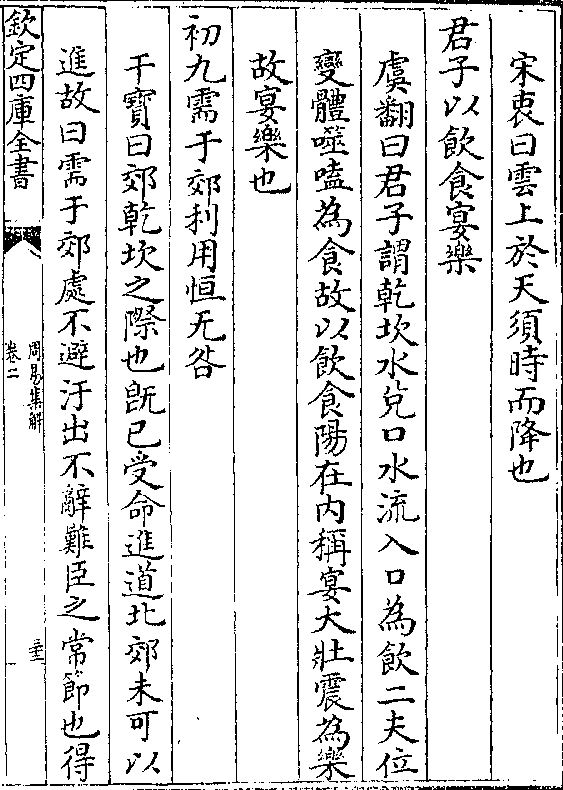 宋衷曰雲上於天須時而降也
君子以飲食宴樂
虞翻曰君子謂乾坎水兌口水流入口為飲二夫位
變體噬嗑為食故以飲食陽在內稱宴大壯震為樂
故宴樂也
初九需于郊利用恒无咎
干寶曰郊乾坎之際也旣已受命進道北郊未可以
進故曰需于郊處不避汙出不辭難臣之常節也得
欽定四庫全書
周易集解
卷二